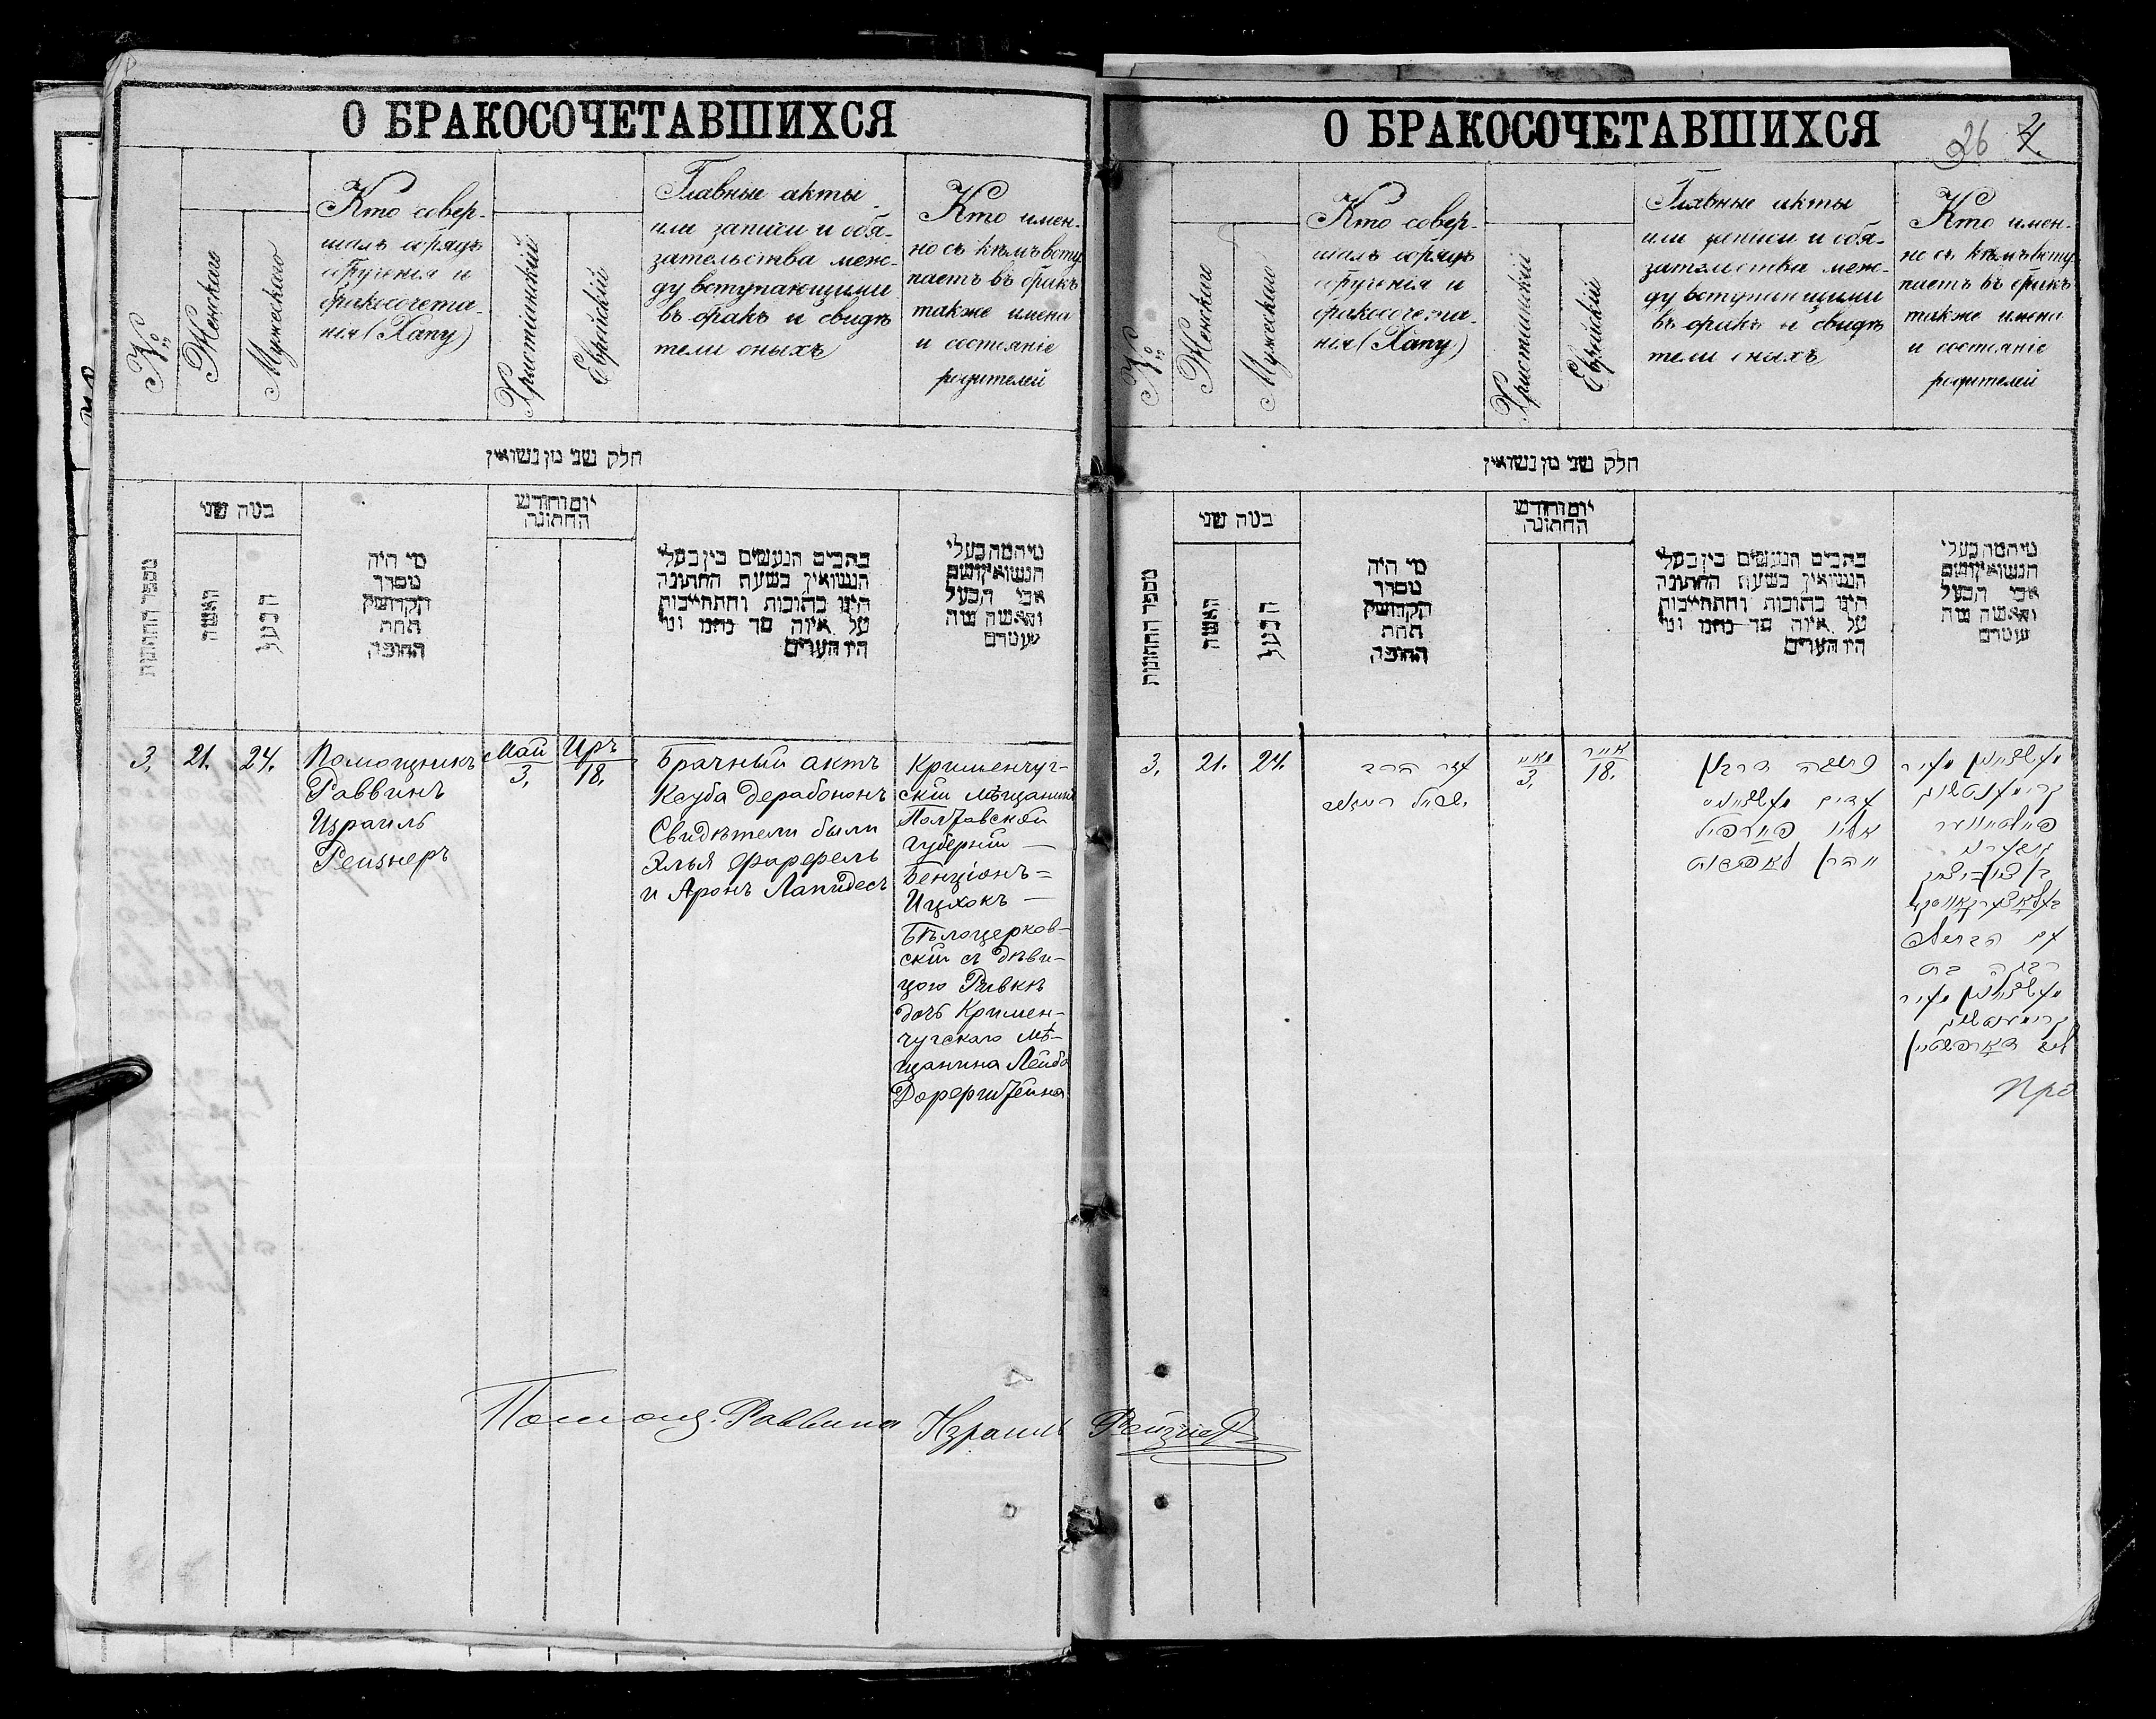 О БРАКОСОЧЕТАВШИХСЯ
№
Женскаго
Мужескаго
Кто совер-
шалъ обрядъ
обрученія и
бракосочета-
нія (Хапу)
Христіанскій
Еврейскій
Главные акты
или записи и обя-
зательства меж-
ду вступающими
въ бракъ и свидѣ
тели оныхъ
Кто имен-
но съ кѣмъ всту
паетъ въ бракъ
также имена
и состояніе
родителей
חלק שני מן נשואין
מספר החתונות
כמה שני
האשה
הבעל
מי היה
מסדר
הקדושין
תחת
החופה
יום וחודש
החתונה
כתבים הנעשים בין בעלי
הנשואין בשעת החתונה
היינו כתובות והתחייבות
על איזה סך כמה ומי
היו העדים
מי המה בעלי
הנשואין ושם
אבי הבעל
והאשה מה
מעמדם
3. 21. 24.
Помощникъ
Раввинъ
Израиль
Рейзнеръ
Май
3.
Иръ
18.
Брачный актъ
Ксуба дерабононъ
Свидѣтели были
Элья Фарфель
и Аронъ Лапидесъ
Кременчуг-
скій мѣщанинъ
Полтавской
Губерніи —
Бенціонъ=
Ицхокъ —
Бѣлоцерков-
скій съ дѣви-
цою Ривкѣ
дочь Кремен-
чугскаго мѣ-
щанина Лейба
Помощ. Раввина Израиль Рейзнеръ
О БРАКОСОЧЕТАВШИХСЯ
26
№
Женскаго
Мужескаго
Кто совер-
шалъ обрядъ
обрученія и
бракосочета-
нія (Хапу)
Христіанскій
Еврейскій
Главные акты
или записи и обя-
зательства меж-
ду вступающими
въ бракъ и свидѣ
тели оныхъ
Кто имен-
но съ кѣмъ всту
паетъ въ бракъ
также имена
и состояніе
родителей
חלק שני מן נשואין
מספר החתונות
כמה שני
האשה
הבעל
מי היה
מסדר
הקדושין
תחת
החופה
יום וחודש
החתונה
כתבים הנעשים בין בעלי
הנשואין בשעת החתונה
היינו כתובות והתחייבות
על איזה סך כמה ומי
היו העדים
מי המה בעלי
הנשואין ושם
אבי הבעל
והאשה מה
מעמדם
3. 21. 24.
עזר הרב
מאי
3.
אייר
18.
כתובה דרבנן
אליו פארפיל
מעשצאנין מעיר
קרימענטשוג
בן ציון=יצחק
עם הבתולה
רבקה בת
מעשצאנין מעיר
קרימענטשוג
ליב